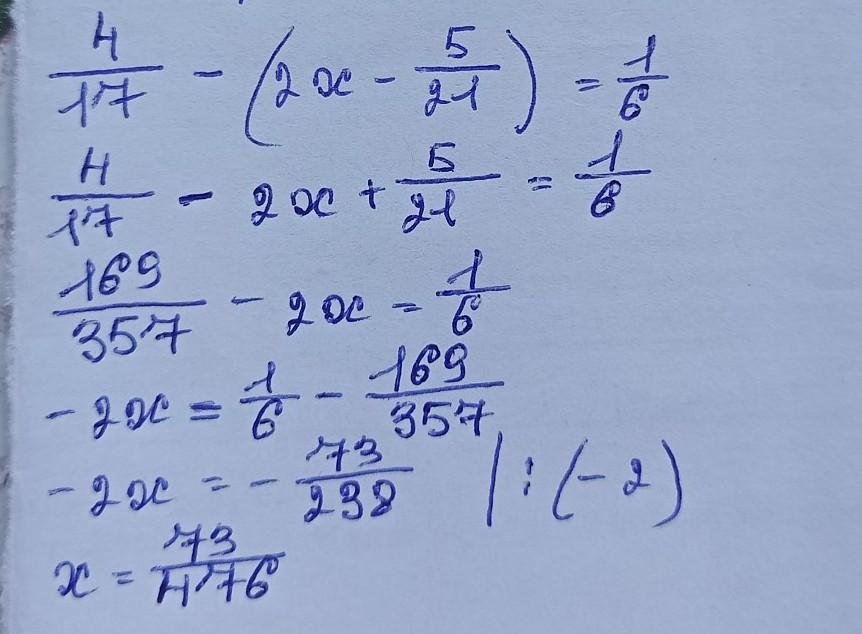 4/17 - (2x - 5/21) = 1/6
4/17 - 2x + 5/21 = 1/6
169/357 - 2x = 1/6
-2x = 1/6 - 169/357
-2x = - 73/238 | : (-2)
x = 73/476